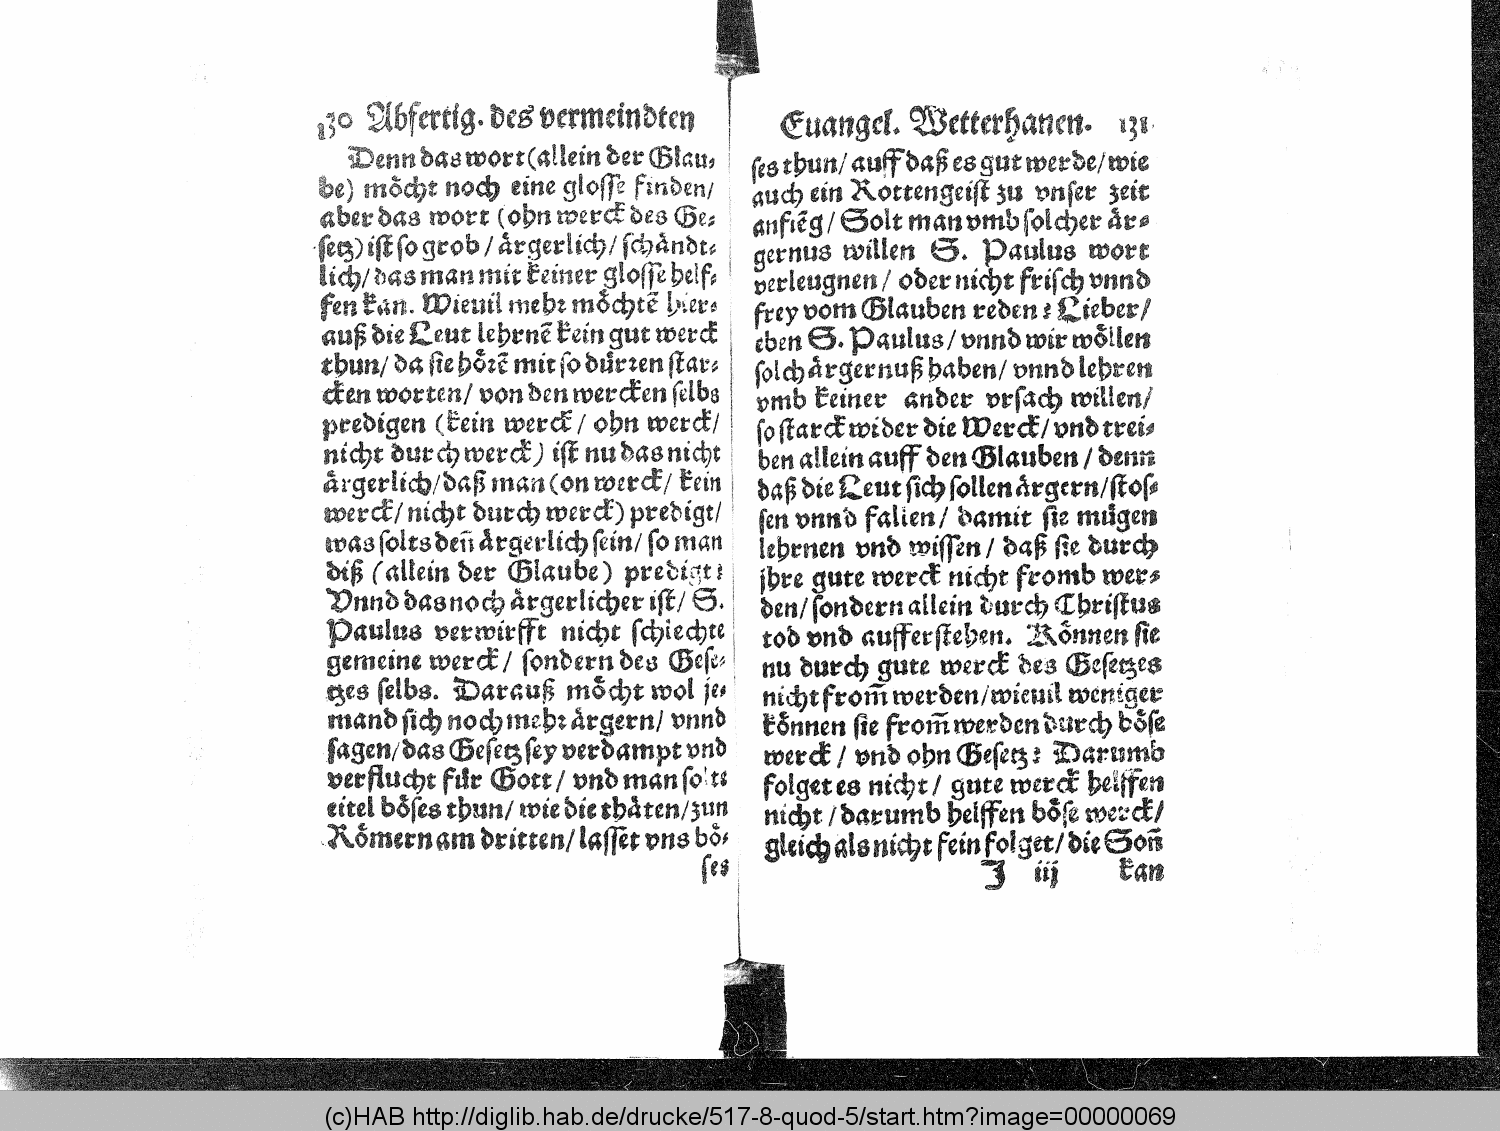 130 Abfertig. des vermeindten
Denn das wort (allein der Glau⸗
be) mo̊cht noch eine glosse finden/
aber das wort (ohn werck des Ge⸗
setz) ist so grob / a̍rgerlich/ scha̍ndt⸗
lich/ das man mit keiner glosse helf⸗
fen kan. Wieuil mehr mo̍chtẽ hier⸗
auß die Leut lehrnẽ kein gut werck
thun/ da sie ho̍rẽ mit so du̍rren star⸗
cken worten/ von den wercken selbs
predigen (kein werck/ ohn werck/
nicht durch werck) ist nu das nicht
a̍rgerlich/ daß man (on werck/ kein
werck/ nicht durch werck) predigt/
was solts deñ a̍rgerlich sein/ so man
diß (allein der Glaube) predigt?
Vnnd das noch a̍rgerlicher ist/ S.
Paulus verwirfft nicht schlechte
gemeine werck/ sondern des Gese⸗
tzes selbs. Darauß mo̍cht wol je⸗
mand sich noch mehr a̍rgern/ vnnd
sagen/ das Gesetz sey verdampt vnd
verflucht fu̍r Gott/ vnd man solte
eitel bo̍ses thun/ wie die tha̍ten/ zun
Ro̍mern am dritten/ lasset vns bo̍⸗
ses
Euangel. Wetterhanen. 131
ses thun/ auff daß es gut werde/ wie
auch ein Rottengeist zu vnser zeit
anfiẽg/ Solt man vmb solcher a̍r⸗
gernus willen S. Paulus wort
verleugnen/ oder nicht frisch vnnd
frey vom Glauben reden? Lieber/
eben S. Paulus/ vnnd wir wo̍llen
solch a̍rgernuß haben/ vnnd lehren
vmb keiner ander vrsach willen/
so starck wider die Werck/ vnd trei⸗
ben allein auff den Glauben / denn
daß die Leut sich sollen a̍rgern/ stos⸗
sen vnnd fallen/ damit sie mu̍gen
lehrnen vnd wissen/ daß sie durch
jhre gute werck nicht fromb wer⸗
den/ sondern allein durch Christus
tod vnd aufferstehen. Ko̍nnen sie
nu durch gute werck des Gesetzes
nicht from̃ werden/ wieuil weniger
ko̍nnen sie from̃ werden durch bo̍se
werck / vnd ohn Gesetz? Darumb
folget es nicht/ gute werck helffen
nicht / darumb helffen bo̍se werck/
gleich als nicht fein folget/ die Soñ
J iij kan
(c)HAB http://diglib.hab.de/drucke/517-8-quod-5/start.htm?image=00000069